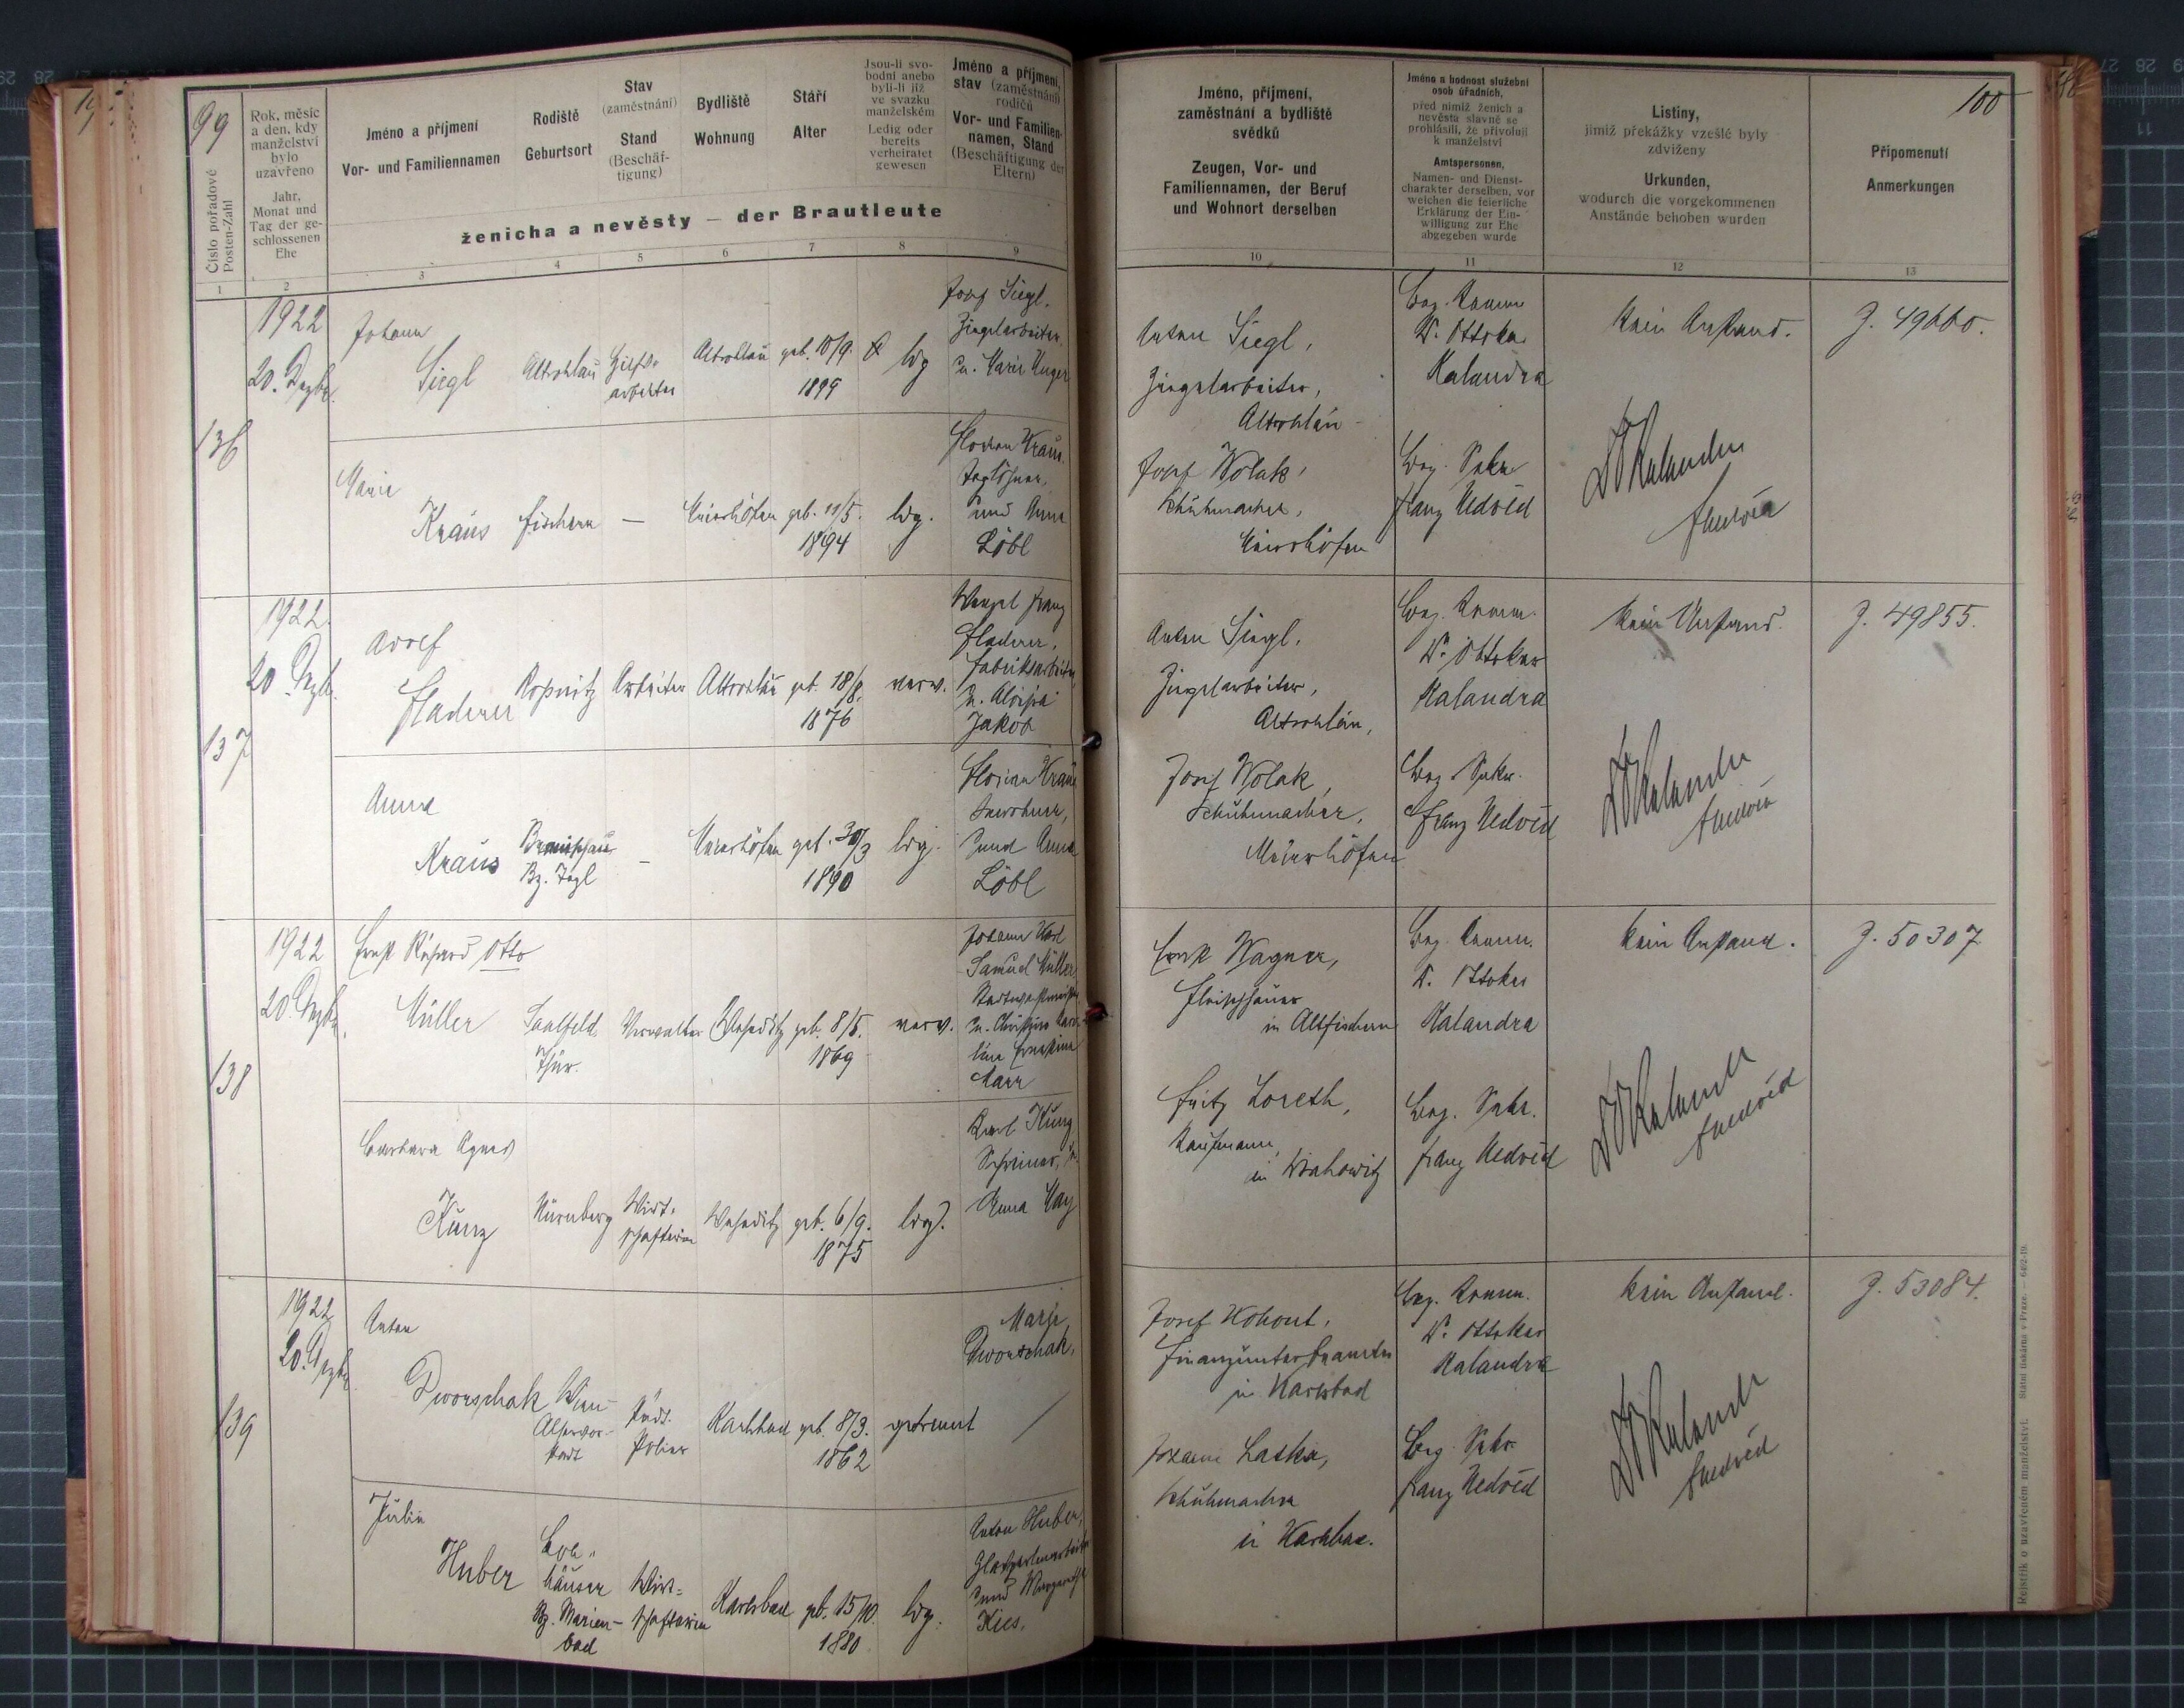 99
Číslo pořadové
Posten-Zahl
Rok, měsíc
a den, kdy
manželství
bylo
uzavřeno
Jahr,
Monat und
Tag der ge-
schlossenen
Ehe
Jméno a příjmení
Vor- und Familiennamen
Rodiště
Geburtsort
Stav
(zaměstnání)
Stand
(Beschäf-
tigung)
Bydliště
Wohnung
Stáří
Alter
Jsou-li svo-
bodní anebo
byli-li již
ve svazku
manželském
Ledig oder
bereits
verheiratet
gewesen
Jméno a příjmení,
stav (zaměstnání)
rodičů
Vor- und Familien-
namen, Stand
(Beschäftigung der
Eltern)
ženicha a nevěsty — der Brautleute
1 2 3 4 5 6 7 8 9
136
1922
20. Dezbr.
Johann
Siegl
Altrohlau
Hilfs-
arbeiter
Altrohlau
geb. 10/9.
1899
ldg
Josef Siegl,
Ziegelarbeiter
u. Marie Unger
Marie
Kraus
Fischern
—
Meierhöfen
geb. 11/5.
1894
ldg.
Florian Kraus
Taglöhner,
und Anna
Löbl
137
1922
20. Dezb.
Adolf
Fladerer
Roßnitz
Arbeiter
Altrohlau
geb. 18/8.
1876
verw.
Wenzel Franz
Fladerer,
Fabriksarbeiter
u. Aloisia
Jakob
Anna
Kraus
Bz. Tepl
—
Meierhöfen
geb. 30/3
1890
ldg.
Florian Kraus
und Anna
Löbl
138
1922
20. Dezbr.
Ernst Richard Otto
Müller
Saalfeld
Thür.
Verwalter
Weheditz
geb. 8/5.
1869
verw.
Johann Karl
Samuel Müller
u. Christine Karo-
line Ernestine
Barbara Agnes
Kunz
Nürnberg
Wirt-
schafterin
Weheditz
geb. 6/9.
1875
ldg.
Karl Kunz
Schreiner, u.
Anna May
139
1922
20. Dezbr.
Anton
Dworschak
Wien
Alservor-
stadt
städt.
Polier
Karlsbad
geb. 8/3.
1862
getrennt
Marie
Dworschak,
Julie
Huber
häuser
Bz. Marien-
bad
Wirt-
schafterin
Karlsbad
geb. 15/10.
1880
ldg.
Anton Huber,
und Margarethe
Kies.
100
Jméno, příjmení,
zaměstnání a bydliště
svědků
Zeugen, Vor- und
Familiennamen, der Beruf
und Wohnort derselben
Jméno a hodnost služební
osob úřadních,
před nimiž ženich a
nevěsta slavně se
prohlásili, že přivolují
k manželství
Amtspersonen,
Namen- und Dienst-
charakter derselben, vor
welchen die feierliche
Erklärung der Ein-
willigung zur Ehe
abgegeben wurde
Listiny,
jimiž překážky vzešlé byly
zdviženy
Urkunden,
wodurch die vorgekommenen
Anstände behoben wurden
Připomenutí
Anmerkungen
10 11 12 13
Anton Siegl,
Ziegelarbeiter,
Altrohlau
Josef Wolak,
Schuhmacher,
Meierhöfen
Bez. Komm.
Dr. Ottokar
Kalandra
Bez. Sekr.
Franz Nedvěd
Kein Anstand.
Dr Kalandra
FNedvěd
Z. 49660.
Anton Siegl,
Ziegelarbeiter,
Altrohlau,
Josef Wolak,
Schuhmacher,
Meierhöfen
Bez. Komm.
Dr. Ottokar
Kalandra
Bez. Sekr.
Franz Nedvěd
Kein Anstand.
Dr Kalandra
FNedvěd
Z. 49855.
Ernst Wagner,
Fleischhauer
in Altfischern
Fritz Loreth,
Kaufmann,
in Drahowitz
Bez. Komm.
Dr. Ottokar
Kalandra
Bez. Sekr.
Franz Nedvěd
Kein Anstand.
Dr Kalandra
FNedvěd
Z. 50307
Josef Kohout,
Finanzunterbeamter
in Karlsbad
Johann Laska,
Schuhmacher
in Karlsbad.
Bez. Komm.
Dr. Ottokar
Kalandra
Bez. Sekr.
Franz Nedvěd
Kein Anstand.
Dr Kalandra
FNedvěd
Z. 53084.
Rejstřík o uzavřeném manželství. Státní tiskárna v Praze. — 6402-19.